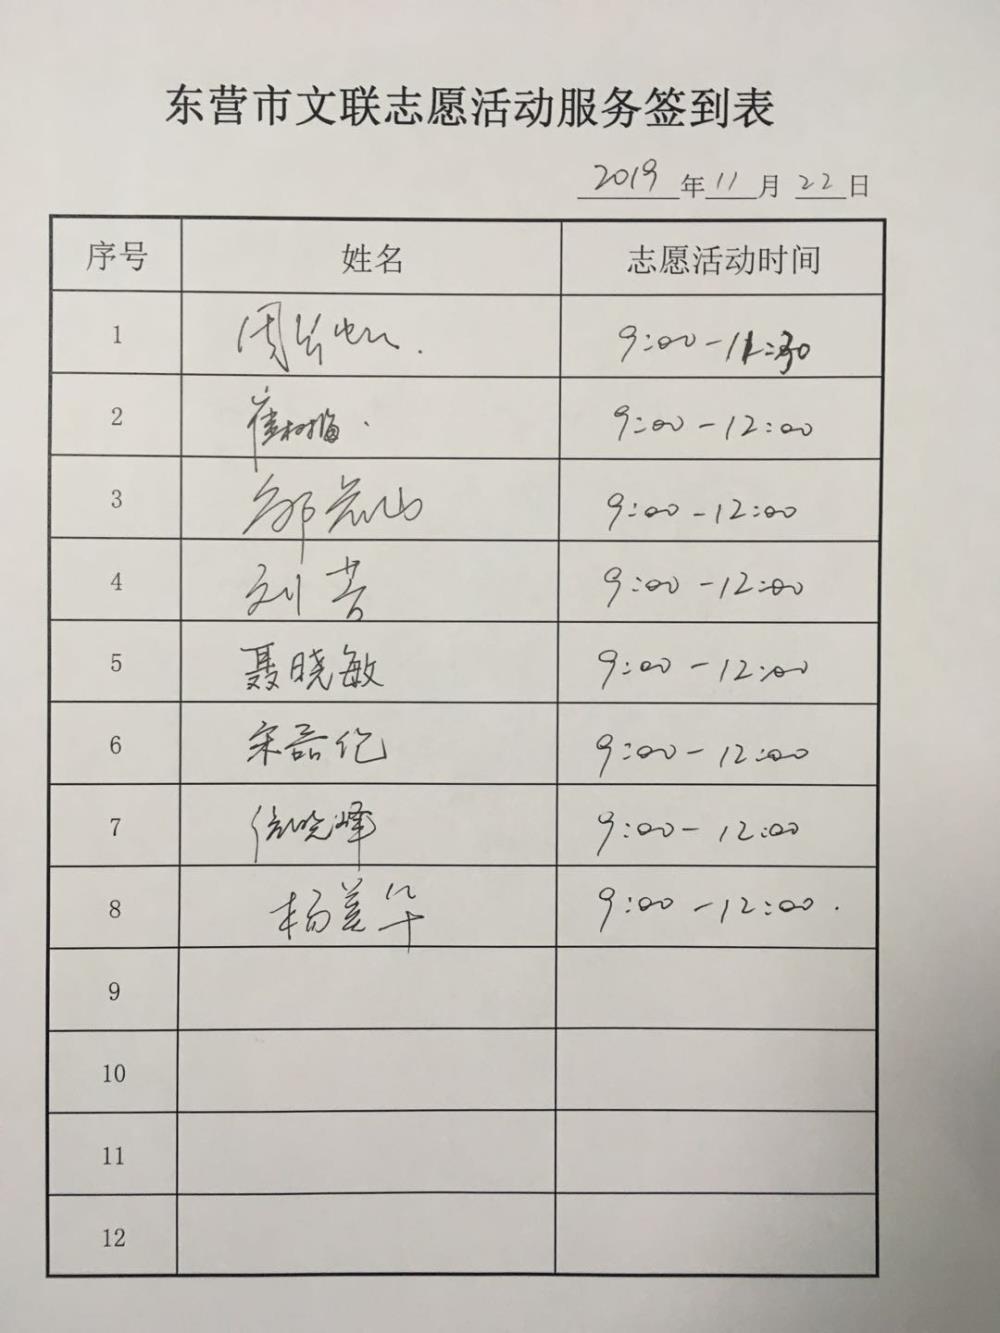 东营市文联志愿活动服务签到表
2019年11月22日
序号 姓名 志愿活动时间
1 9:00-11:30
2 崔树梅. 9:00-12:00
3 9:00-12:00
4 刘芳 9:00-12:00
5 聂晓敏 9:00-12:00
6 宋磊 9:00-12:00
7 晓峰 9:00-12:00
8 杨美华 9:00-12:00.
9
10
11
12